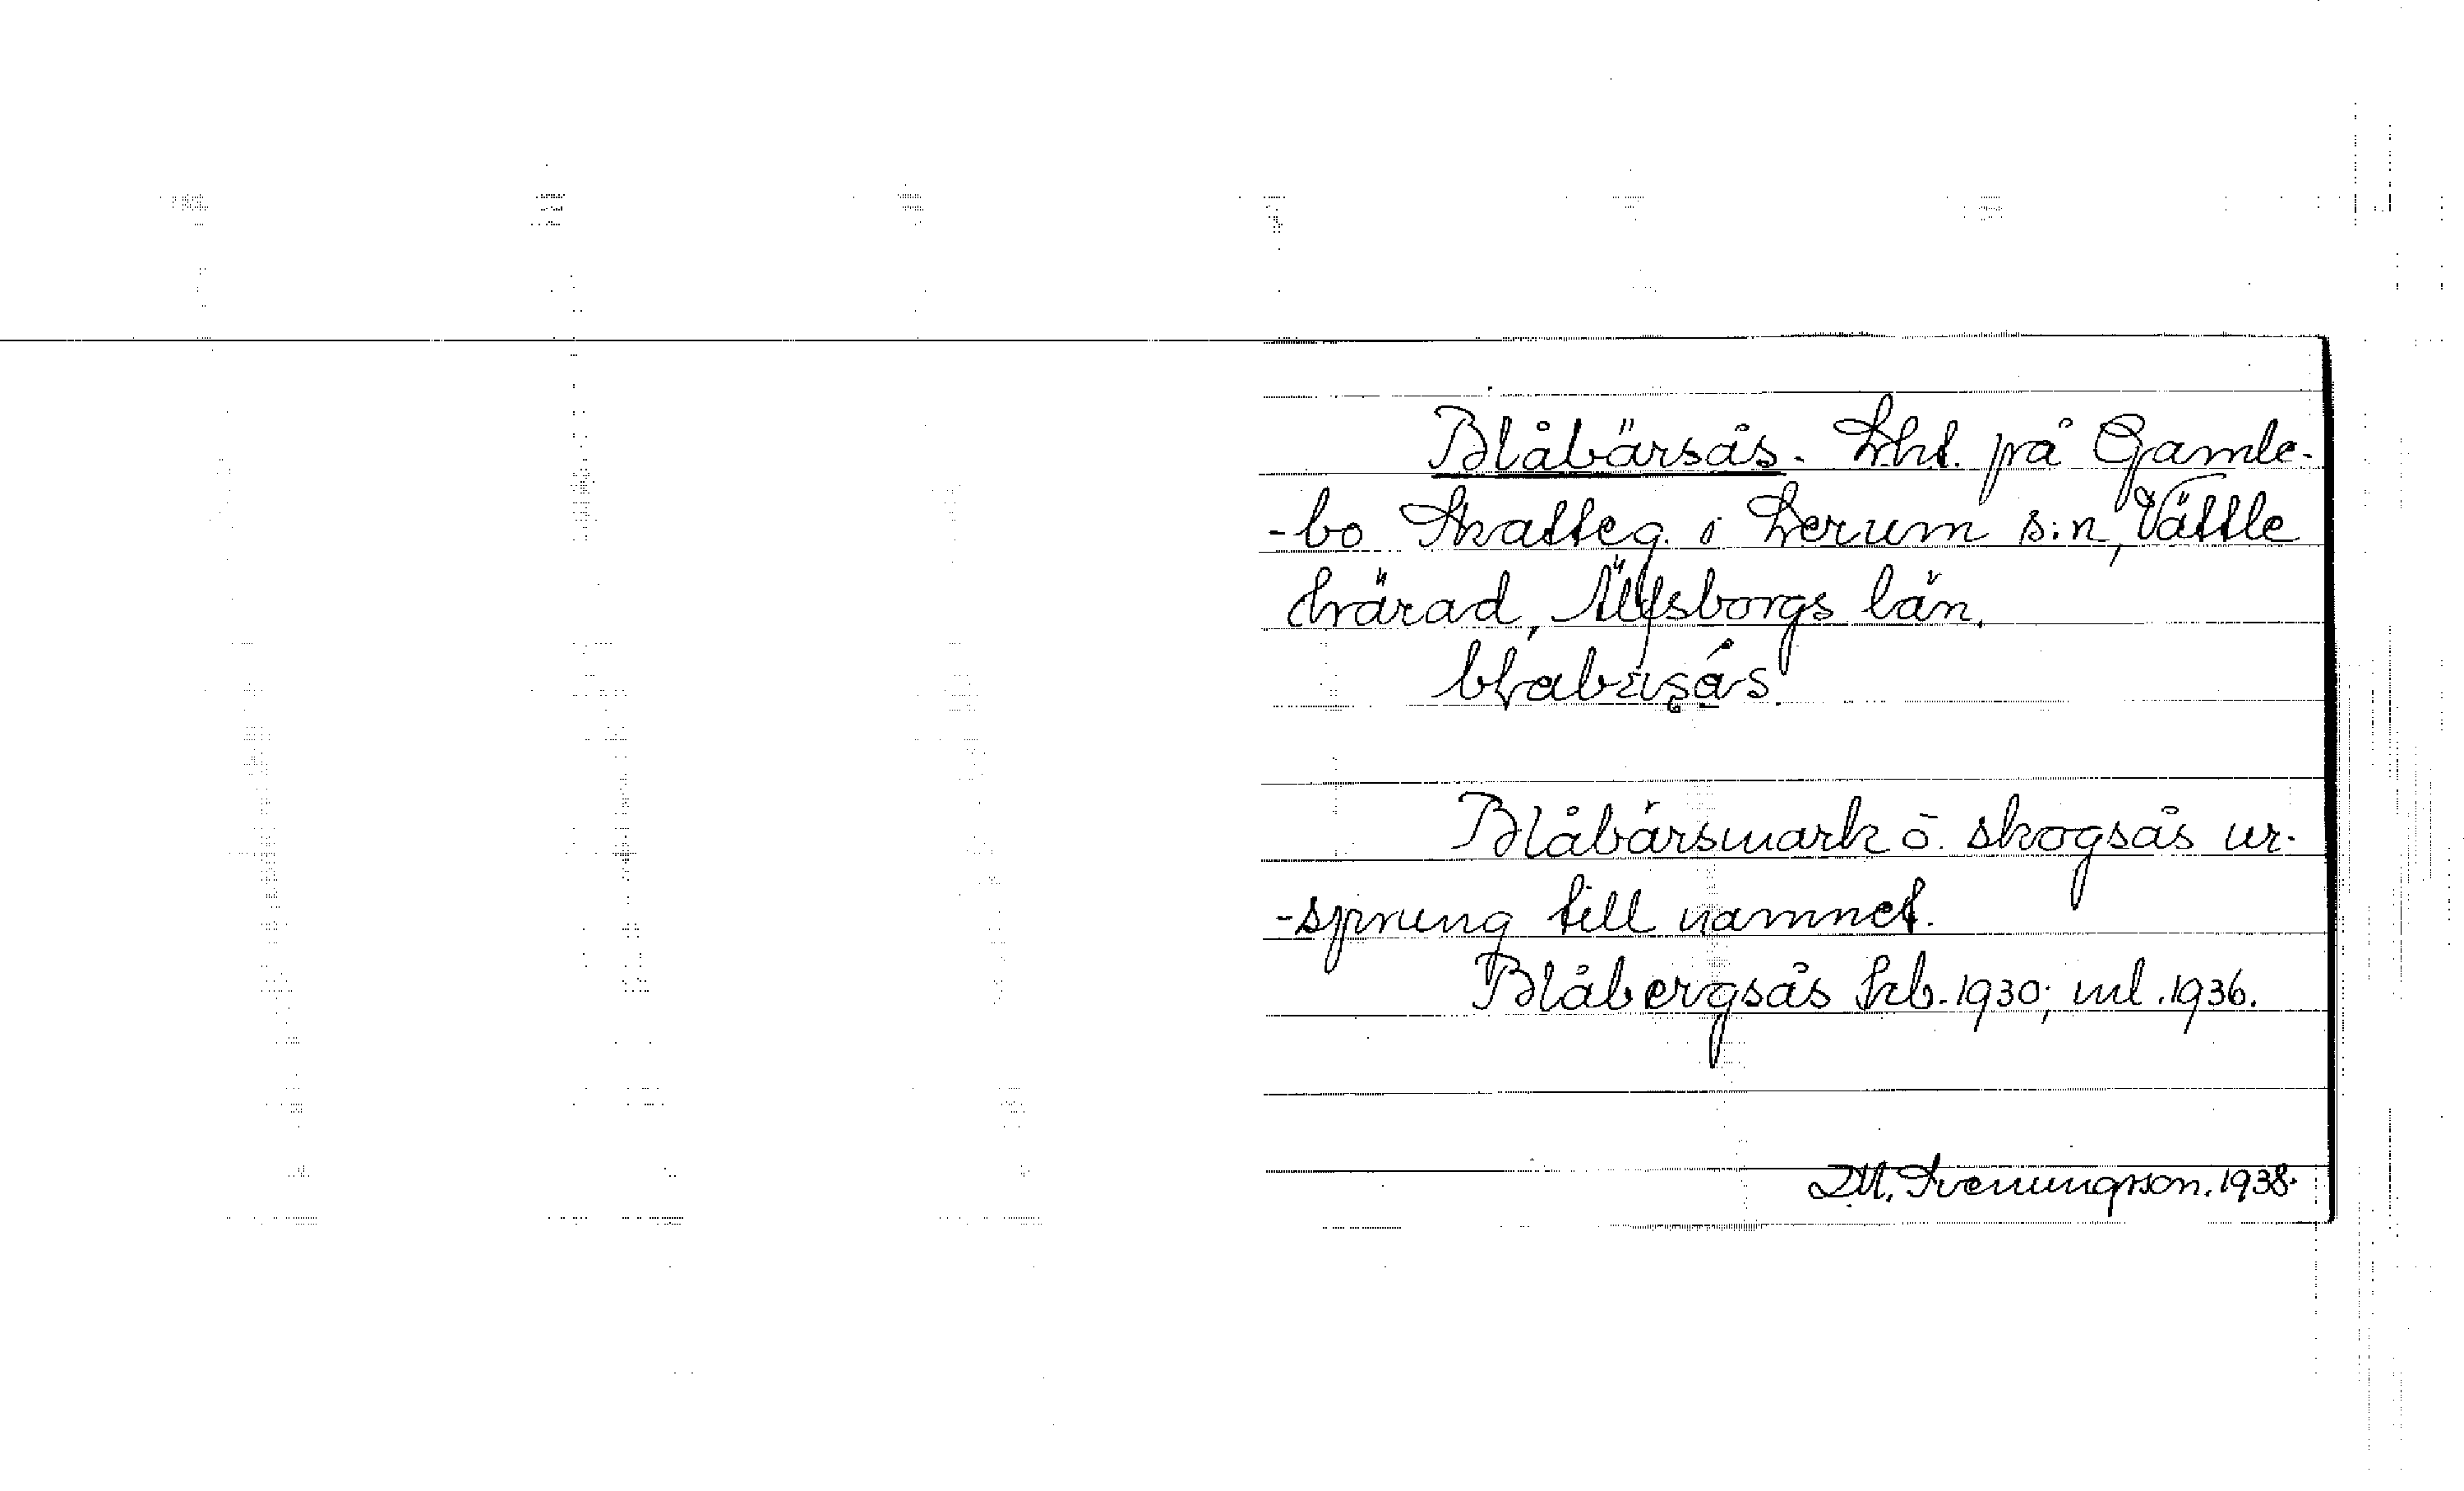 Blåbärsås. Lht. på Gamle-
-bo Skatteg. i Lerum s:n, Vättle
härad, Älfsborgs län.
Blåbärsmark o. skogsås ur-
-sprung till namnet.
Blåbergsås Skb. 1930; ml. 1936.
D.M. Svenungsson. 1938.